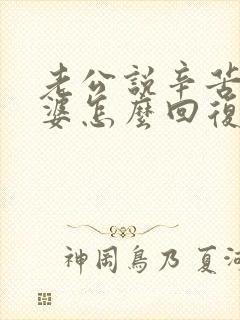 老公說辛苦
婆怎麼回復
神岡鳥乃 夏河